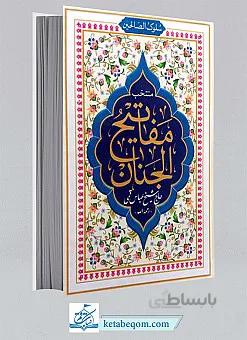 سلوک الصالحین
منتخب
مفاتیح
الجنان
حاج شیخ عباس قمی
باساطی
ketabeqom.com